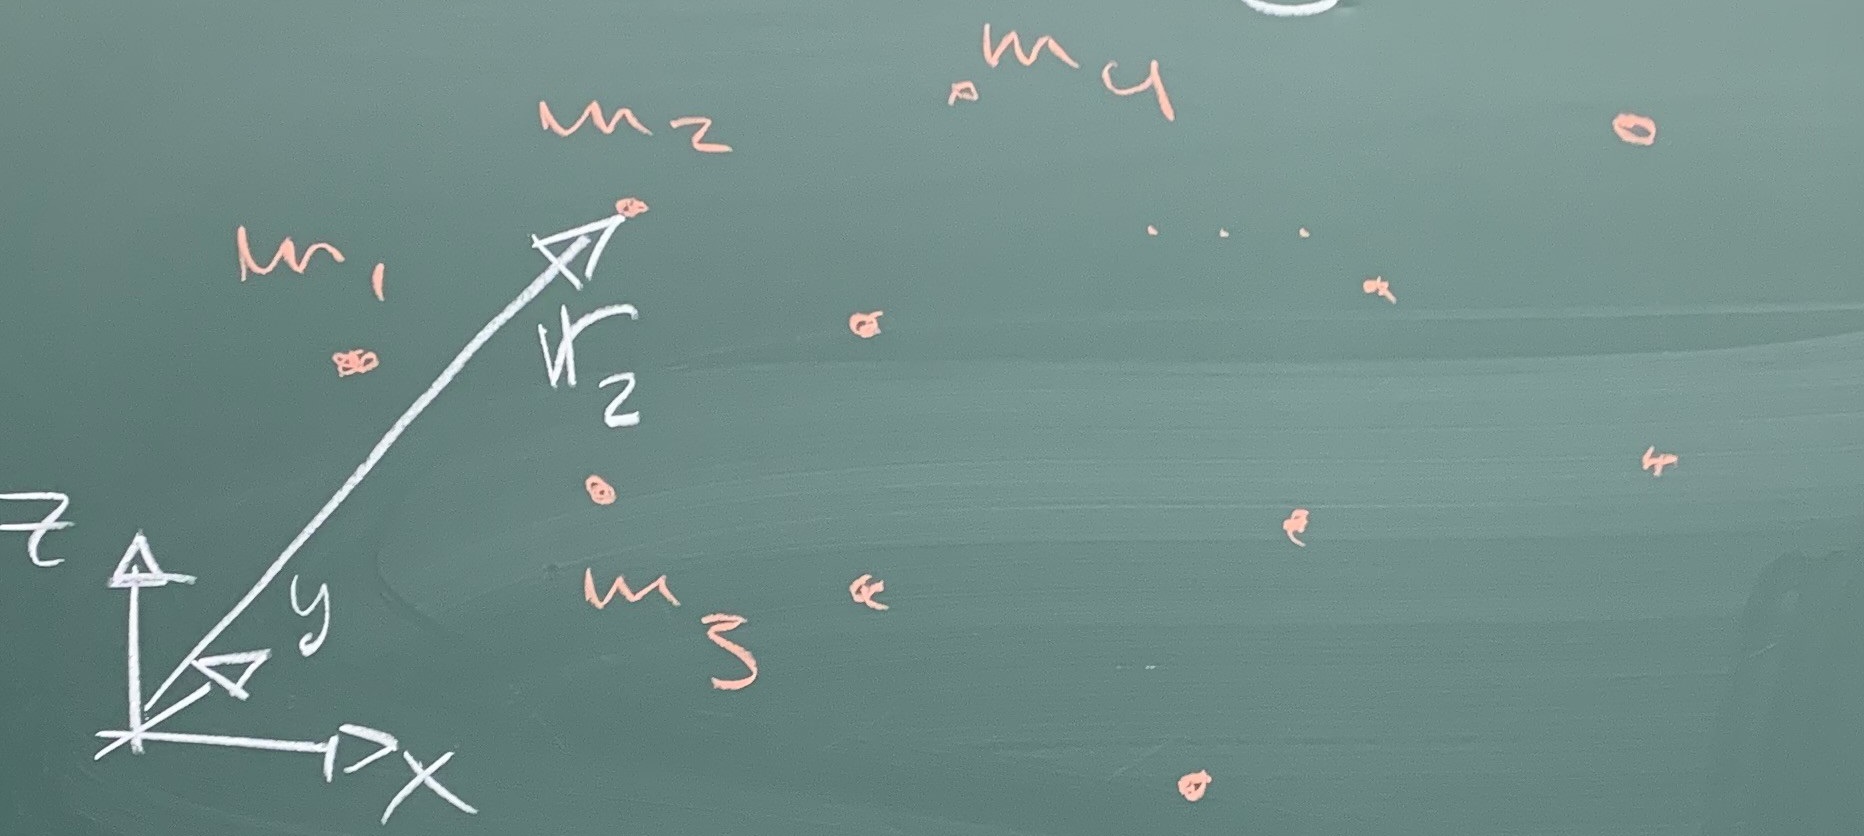 m₄
m₂
m₁
r₂
...
z
y
m₃
x